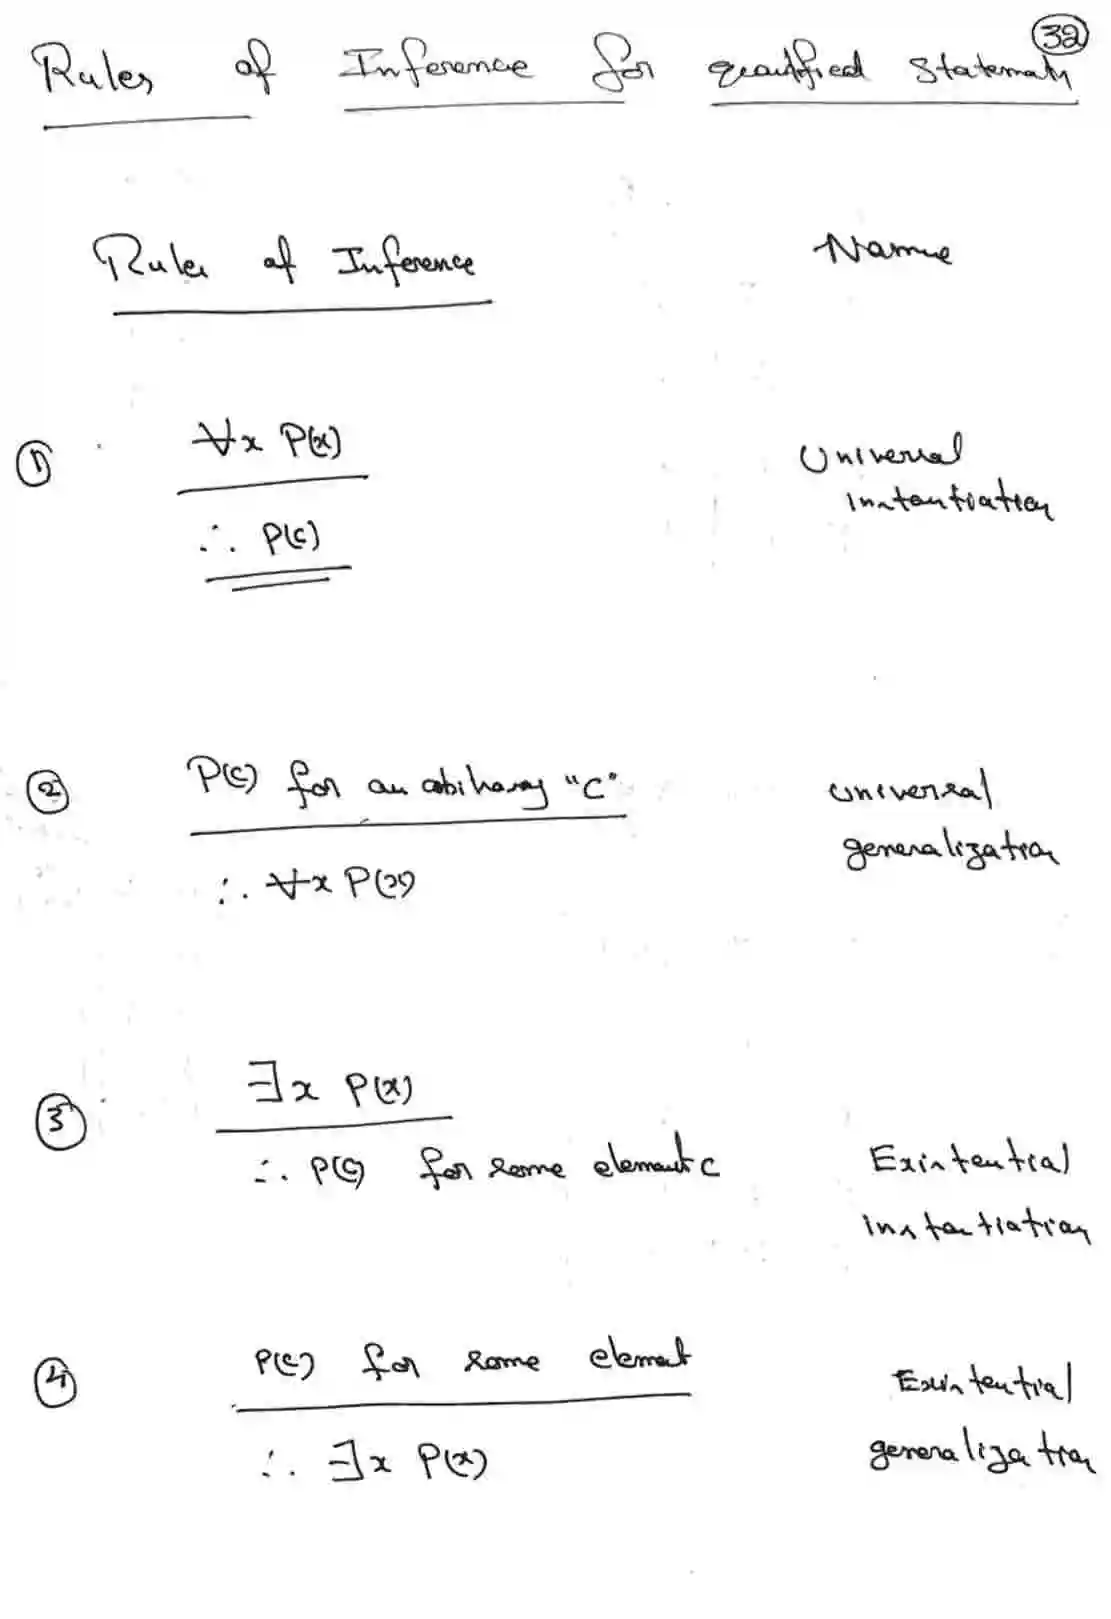 32
Rules of Inference for quantified statements
Rules of Inference Name
① ∀x P(x) Universal
∴ P(c) instantiation
② P(c) for an arbitrary "C" universal
∴ ∀x P(x) generalization
③ ∃x P(x)
∴ P(c) for some element c Existential
instantiation
④ P(c) for some element Existential
∴ ∃x P(x) generalization